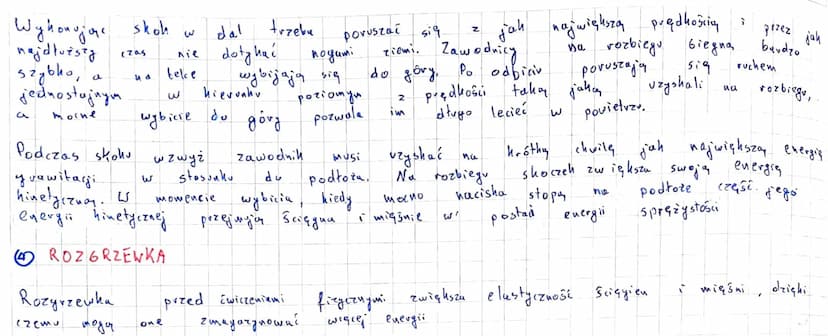 Wykonując skok w dal trzeba poruszać się z jak największą prędkością i przez jak
najdłuższy czas nie dotykać nogami ziemi. Zawodnicy na rozbiegu biegną bardzo
szybko, a na belce wybijają się do góry. Po odbiciu poruszają się ruchem
jednostajnym w kierunku poziomym z prędkości taką jaką uzyskali na rozbiegu,
a mocne wybicie do góry pozwala im długo lecieć w powietrzu.
Podczas skoku wzwyż zawodnik musi uzyskać na krótką chwilę jak największą energię
grawitacji w stosunku do podłoża. Na rozbiegu skoczek zwiększa swoją energię
kinetyczną. W momencie wybicia, kiedy mocno naciska stopą na podłoże część jego
energii kinetycznej przejmują ścięgna i mięśnie w postać energii sprężystości
4 ROZGRZEWKA
Rozgrzewka przed ćwiczeniami fizycznymi zwiększa elastyczność ścięgien i mięśni, dzięki
czemu mogą one zmagazynować więcej energii